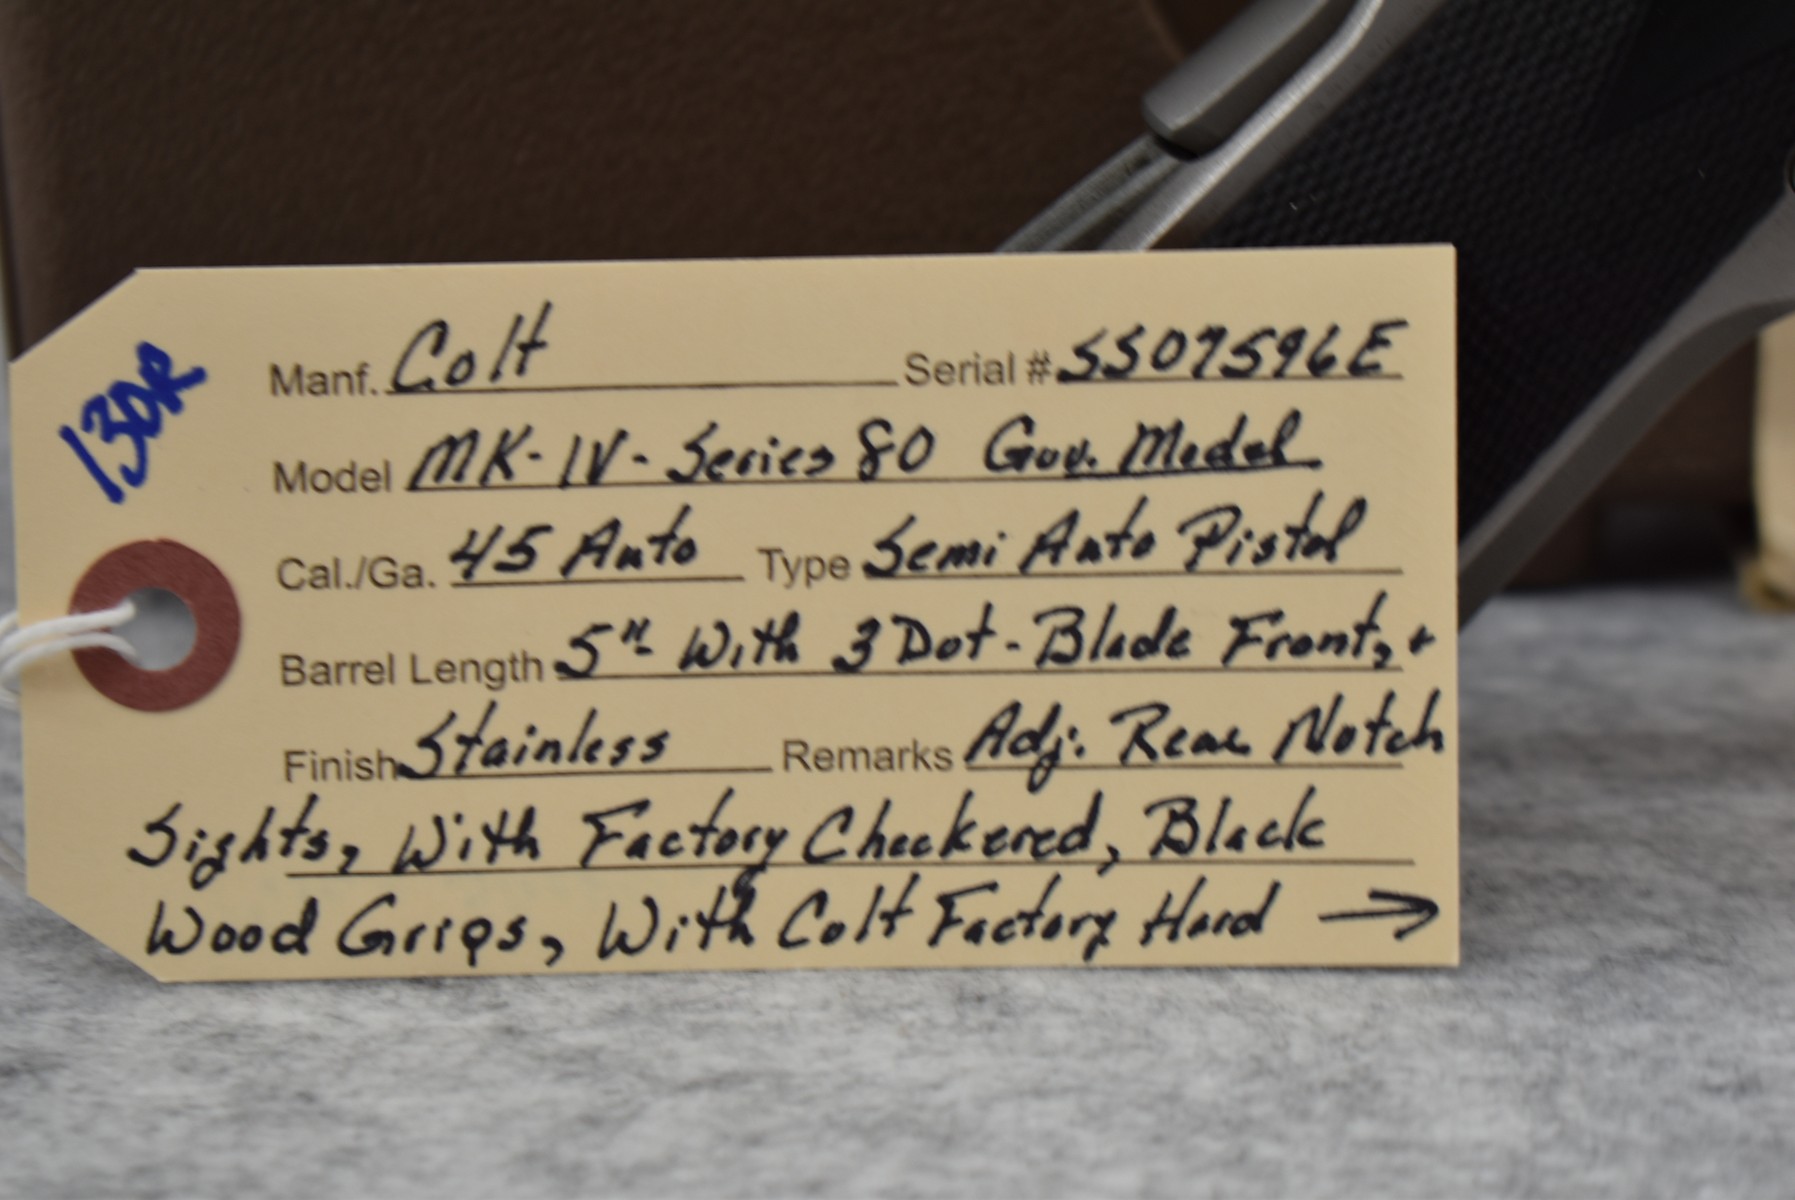 130R
Manf. Colt Serial # SS07596E
Model MK-IV-Series 80 Gov. Model
Cal./Ga. 45 Auto Type Semi Auto Pistol
Barrel Length 5" With 3 Dot-Blade Front, +
Finish Stainless Remarks Adj. Rear Notch
Sights, With Factory Checkered, Black
Wood Grips, With Colt Factory Hard →